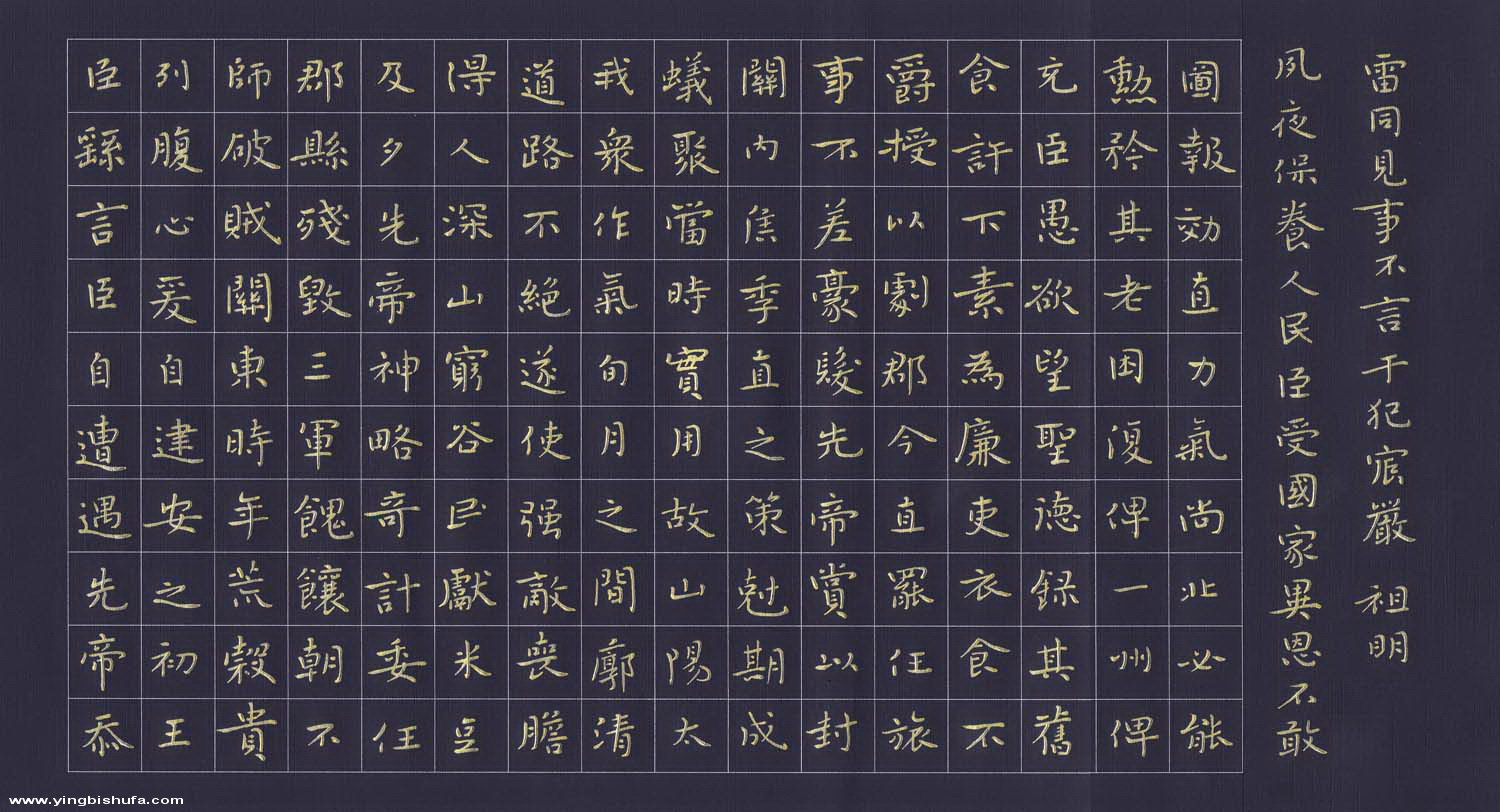 臣繇言臣自遭遇先帝忝
列腹心爰自建安之初王
師破賊關東時年荒榖貴
郡縣殘毀三軍餽饟朝不
及夕先帝神略奇計委任
得人深山窮谷民獻米豆
道路不絕遂使强敵喪膽
我衆作氣旬月之間廓清
蟻聚當時實用故山陽太
關內侯季直之策尅期成
事不差豪髮先帝賞以封
爵授以劇郡今直罷任旅
食許下素為廉吏衣食不
充臣愚欲望聖德録其舊
勲矜其老困復俾一州俾
圖報効直力氣尚壯必能
夙夜保養人民臣受國家異恩不敢
雷同見事不言干犯宸嚴 祖明
www.yingbishufa.com